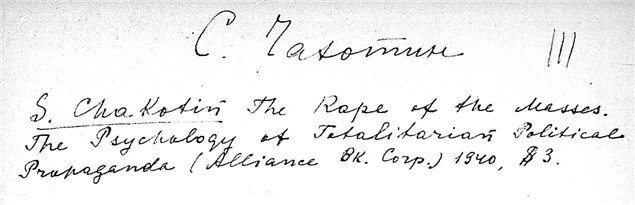 С. Чахотин III
S. Chakotin The Rape of the Masses.
The Psychology of Totalitarian Political
Propaganda (Alliance BK. Corp.) 1940, $3.